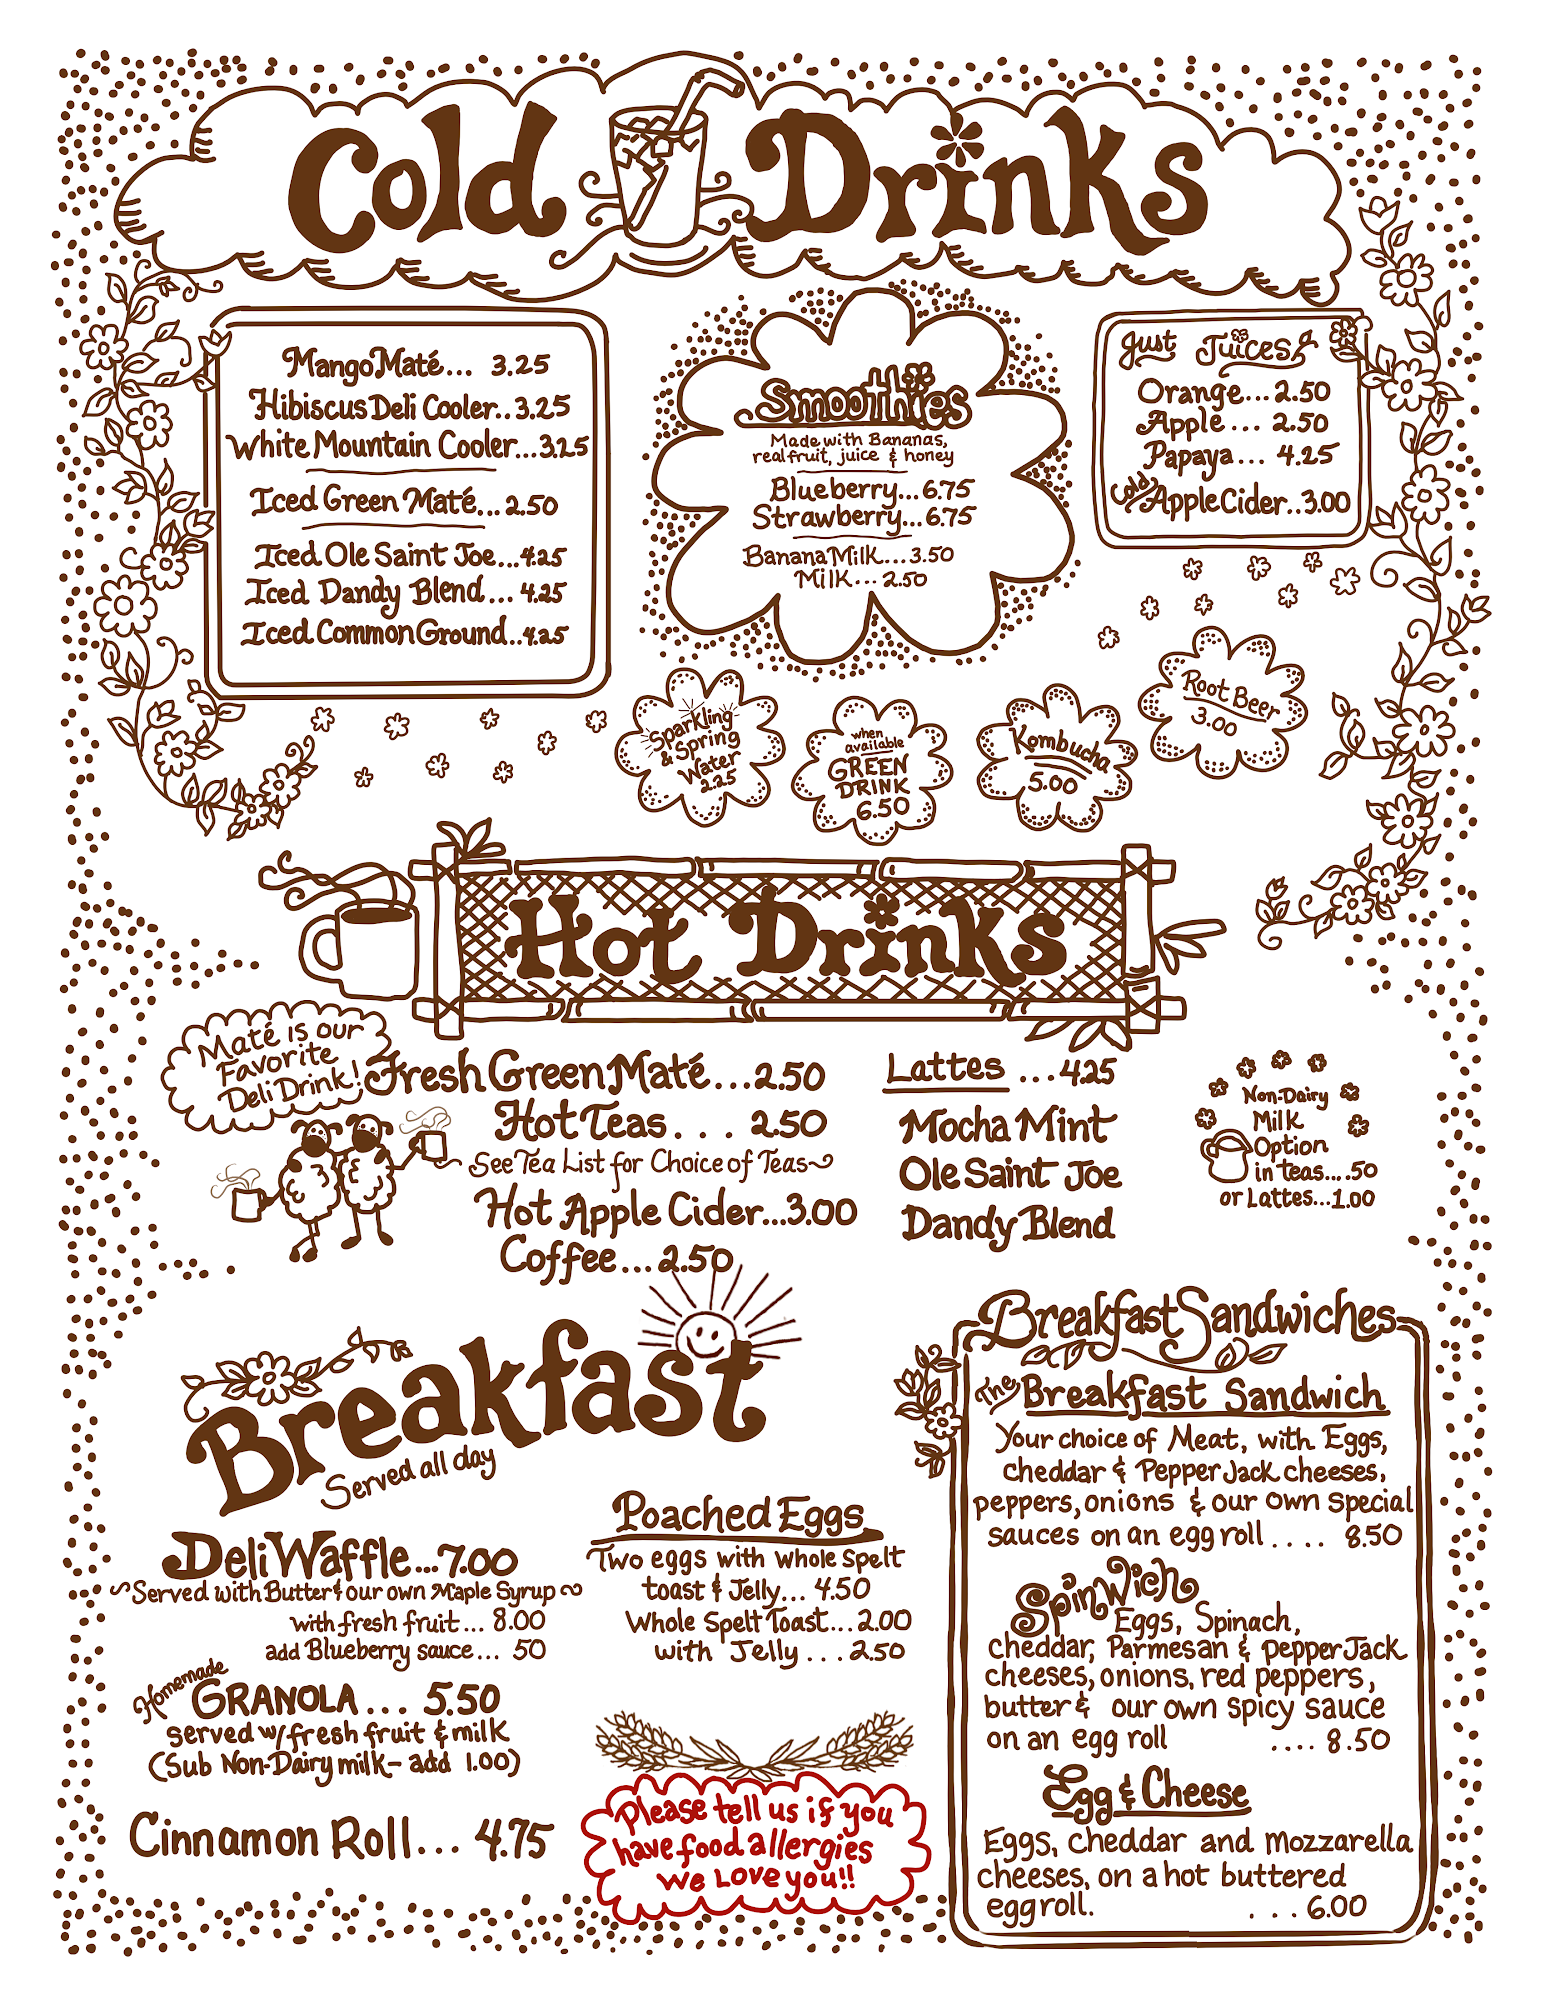 Cold Drinks
Mango Maté... 3.25
Hibiscus Deli Cooler..3.25
White Mountain Cooler...3.25
Iced Green Maté...2.50
Iced Ole Saint Joe...4.25
Iced Dandy Blend... 4.25
Iced Common Ground..4.25
Smoothies
Made with Bananas,
real fruit, juice & honey
Blueberry...6.75
Strawberry...6.75
Banana Milk...3.50
Milk... 2.50
Just Juices
Orange...2.50
Apple.... 2.50
Papaya... 4.25
Cold Apple Cider..3.00
Sparkling
& Spring
Water
2.25
when
available
GREEN
DRINK
6.50
Kombucha
5.00
Root Beer
3.00
Hot Drinks
Maté is our
Favorite
Deli Drink!
Fresh Green Maté...2.50
Hot Teas.... 2.50
~See Tea List for Choice of Teas~
Hot Apple Cider...3.00
Coffee...2.50
Lattes ...4.25
Mocha Mint
Ole Saint Joe
Dandy Blend
Non-Dairy
Milk
Option
in teas....50
or Lattes...1.00
Breakfast
Served all day
Deli Waffle...7.00
~Served with Butter & our own Maple Syrup~
with fresh fruit... 8.00
add Blueberry sauce... 50
Homemade
GRANOLA... 5.50
served w/fresh fruit & milk
(Sub Non-Dairy milk- add 1.00)
Cinnamon Roll... 4.75
Poached Eggs
Two eggs with whole spelt
toast & Jelly... 4.50
Whole Spelt Toast...2.00
with Jelly ...2.50
Please tell us if you
have food allergies
We Love you!!
Breakfast Sandwiches
The Breakfast Sandwich
Your choice of Meat, with Eggs,
cheddar & Pepper Jack cheeses,
peppers, onions & our own special
sauces on an egg roll.... 8.50
SpinWich
Eggs, Spinach,
cheddar, Parmesan & pepper Jack
cheeses, onions, red peppers,
butter & our own spicy sauce
on an egg roll .... 8.50
Egg & Cheese
Eggs, cheddar and mozzarella
cheeses, on a hot buttered
egg roll. ... 6.00